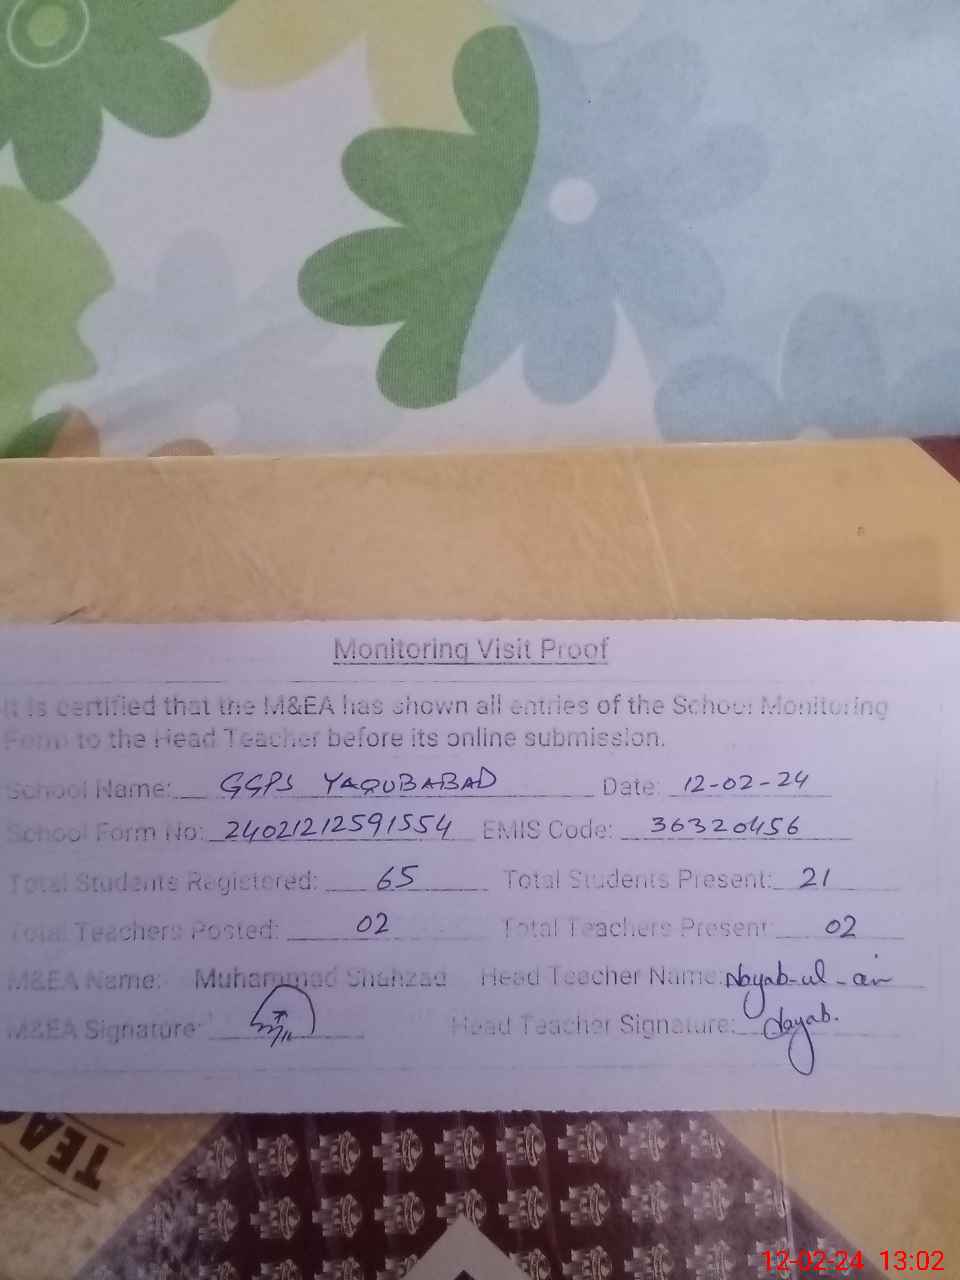 Monitoring Visit Proof
It is certified that the M&EA has shown all entries of the School Monitoring
Form to the Head Teacher before its online submission.
School Name: GGPS YAQUBABAD Date: 12-02-24
School Form No: 24021212591554 EMIS Code: 36320456
Total Students Registered: 65 Total Students Present: 21
Total Teachers Posted: 02 Total Teachers Present: 02
M&EA Name: Muhammad Shahzad Head Teacher Name: Nayab-ul-ain
M&EA Signature: Head Teacher Signature: Nayab.
TEA
12-02-24 13:02